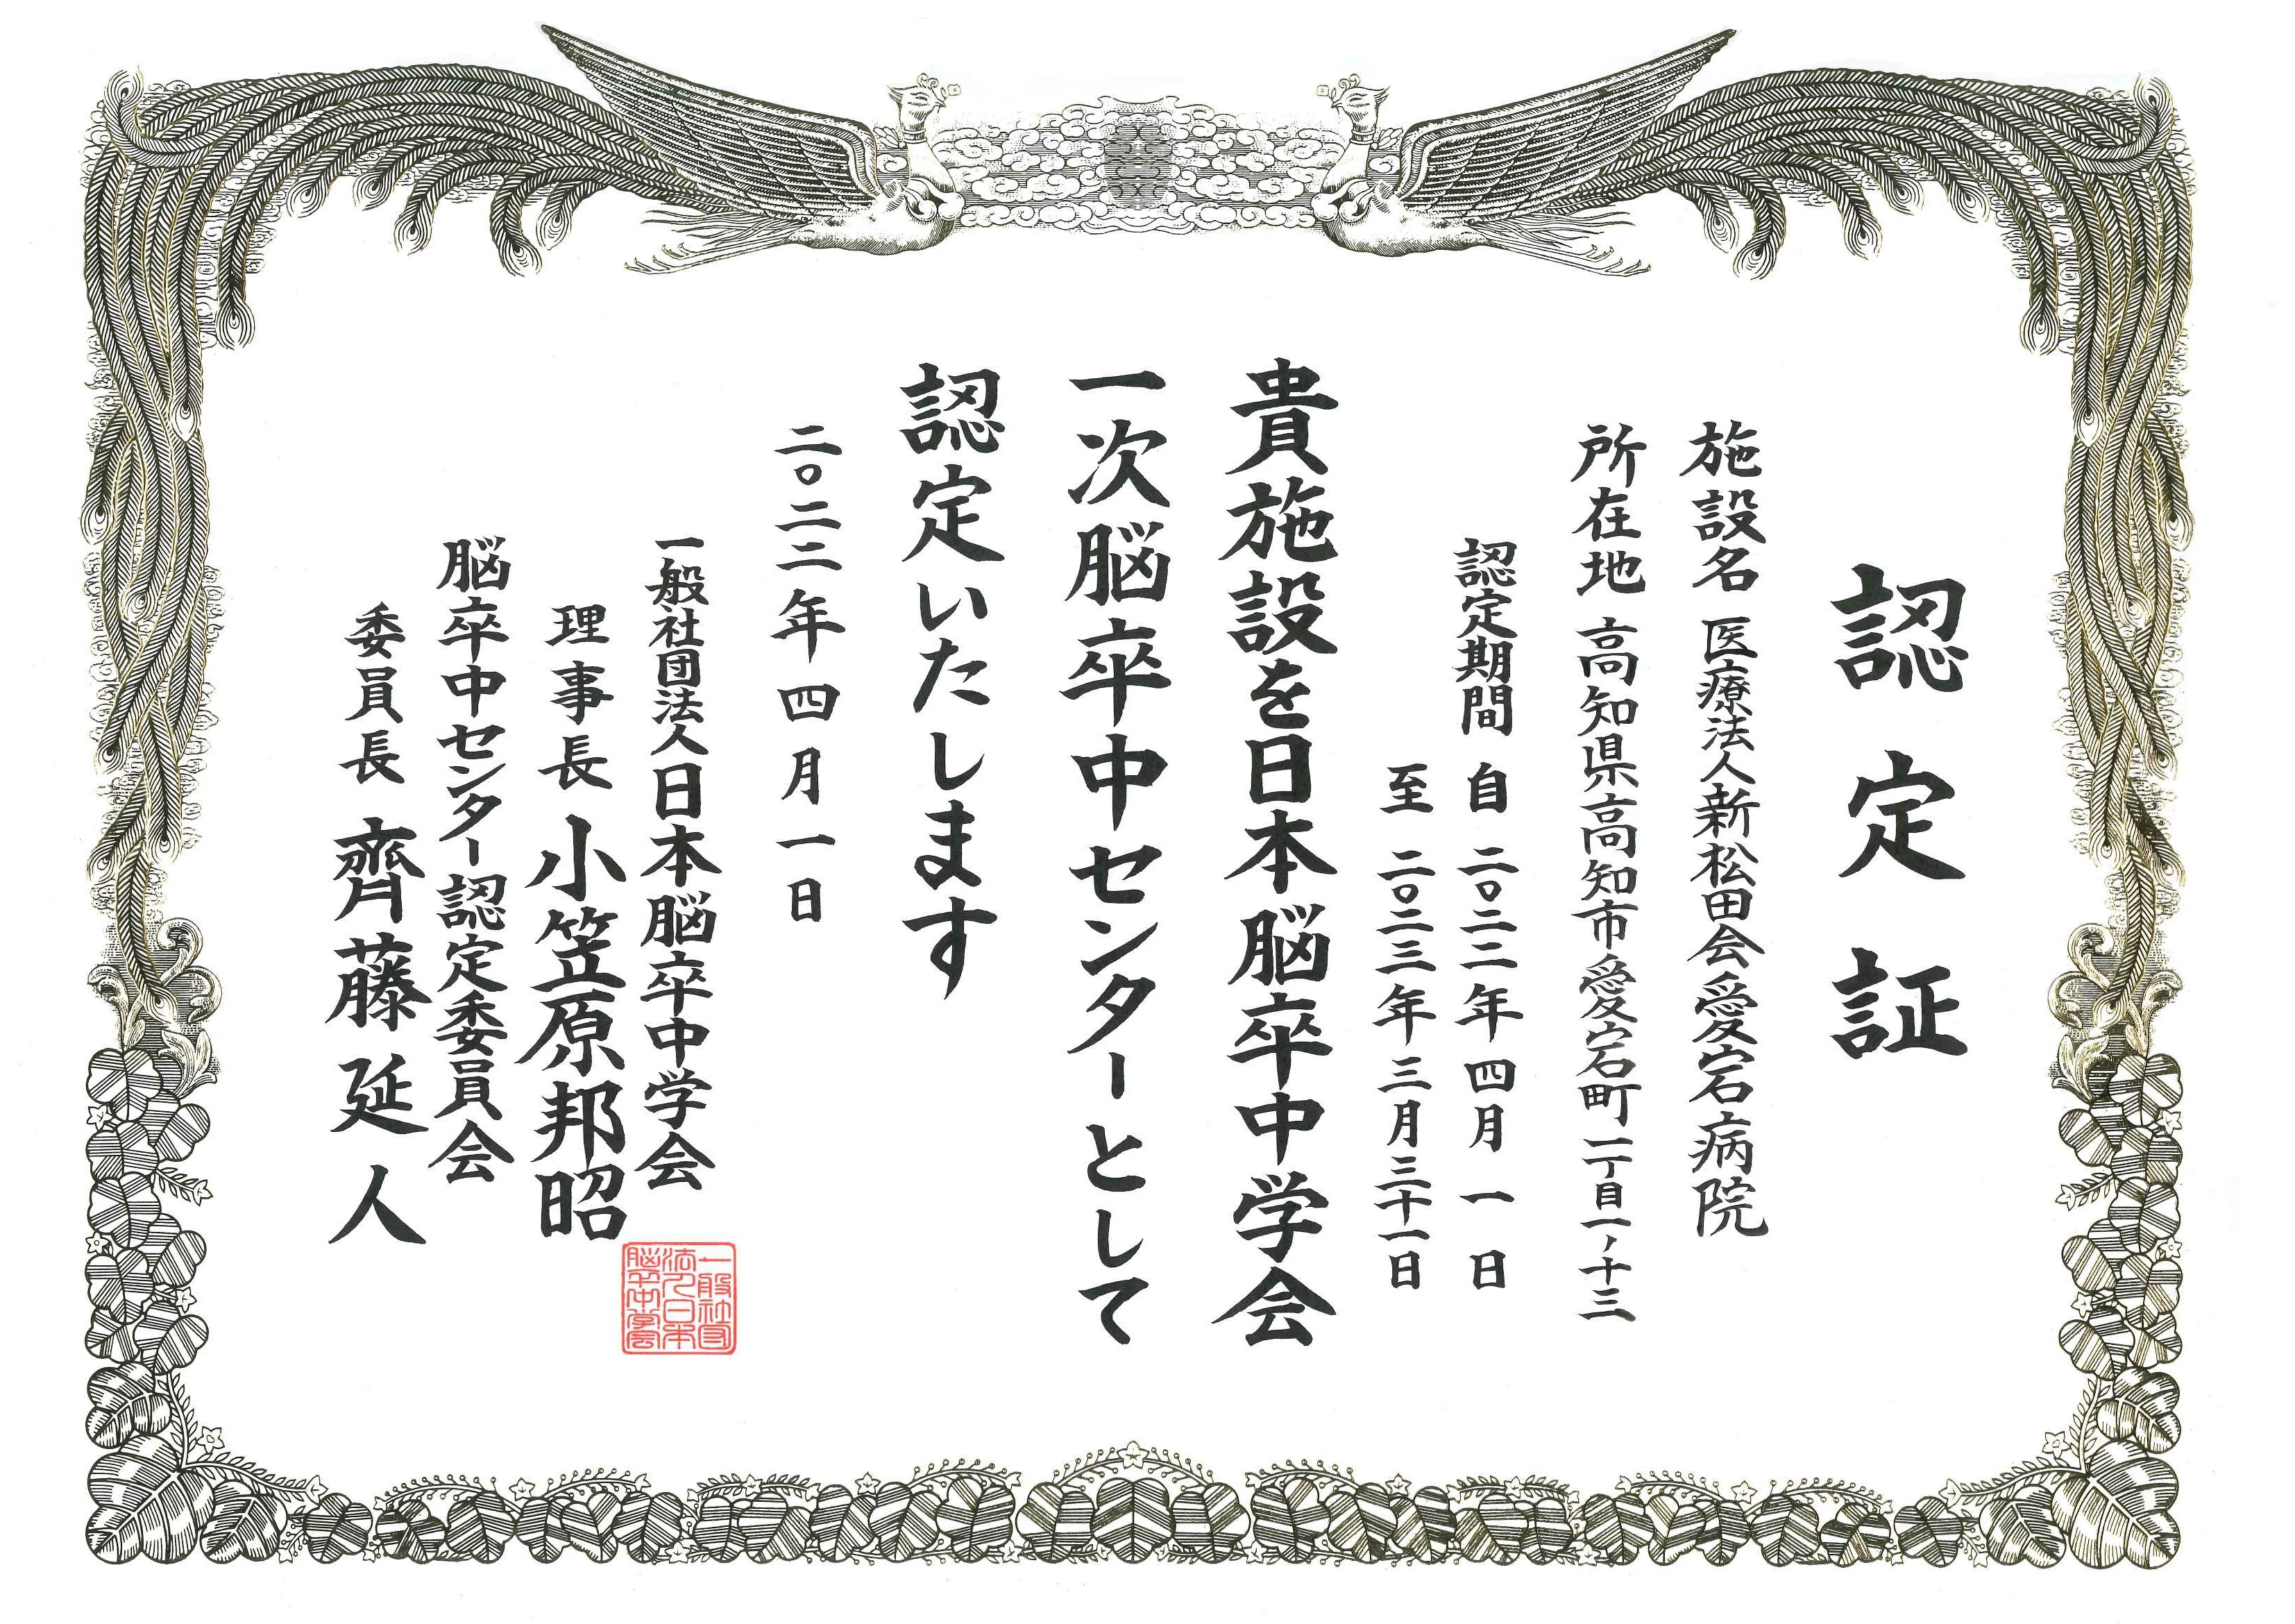 認定証
施設名 医療法人新松田会愛宕病院
所在地 高知県高知市愛宕町一丁目一ノ十三
認定期間 自 二〇二二年四月一日
至 二〇二三年三月三十一日
貴施設を日本脳卒中学会
一次脳卒中センターとして
認定いたします
二〇二二年四月一日
一般社団法人日本脳卒中学会
理事長 小笠原邦昭
脳卒中センター認定委員会
委員長 齊藤延人
一般社団
法人日本
脳卒中学会